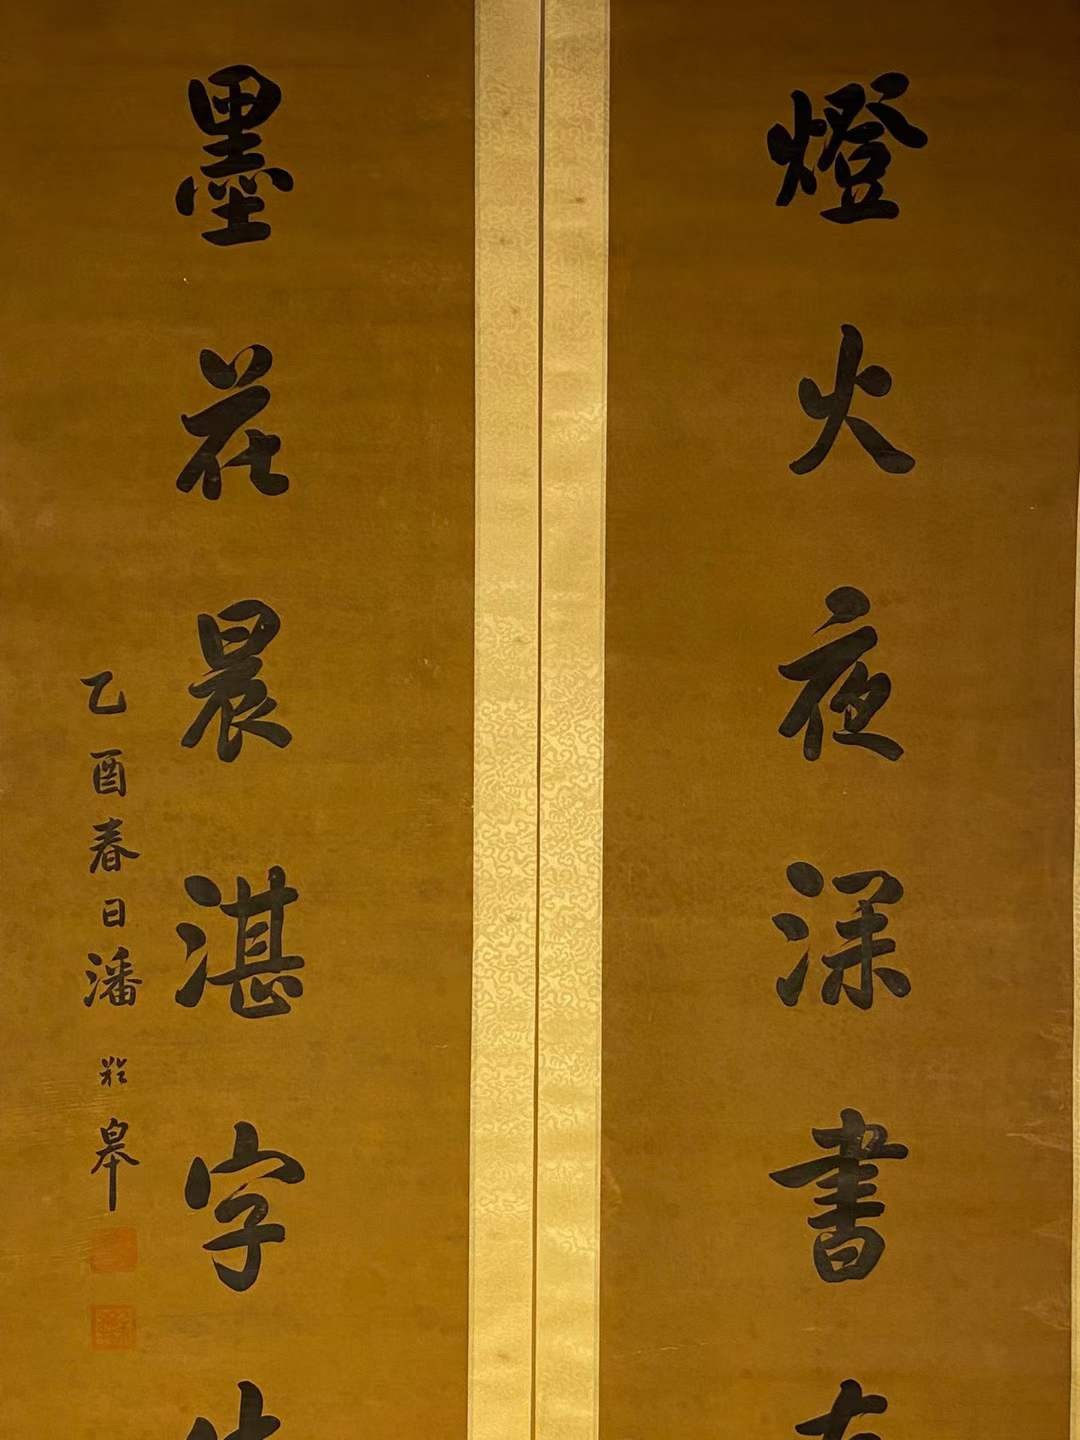 燈火夜深書有
墨花晨湛字
乙酉春日潘於皋